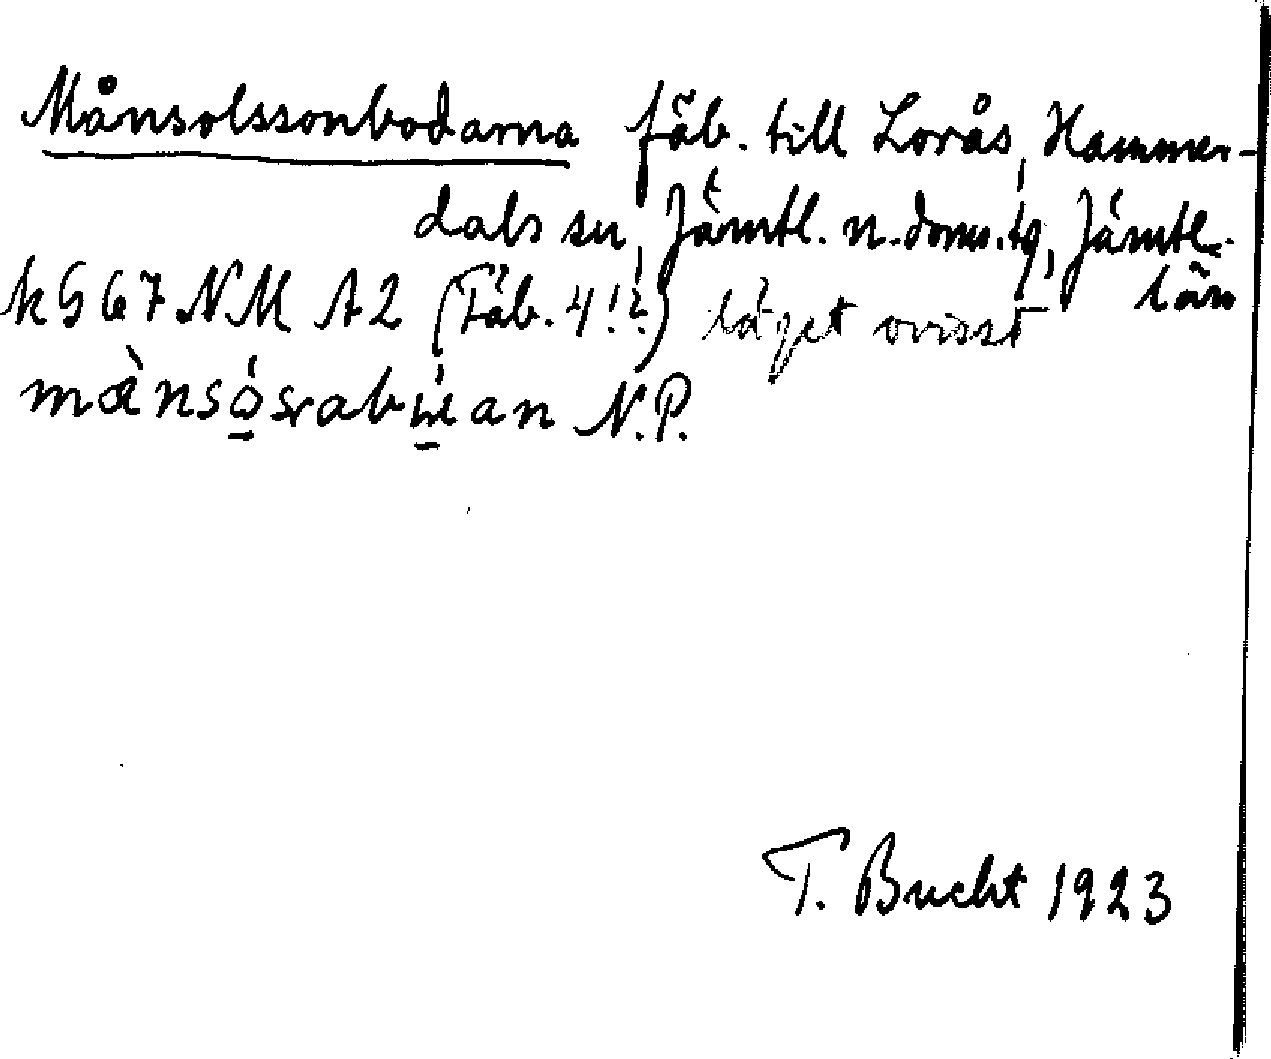 Månsolssonbodarna fäb. till Lorås, Hammer-
dals sn, Jämtl. n. doms. tg, Jämtl.
län
k G 67 NM A2 (Fäb. 4!?) läget ovisst
N.P.
T. Bucht 1923